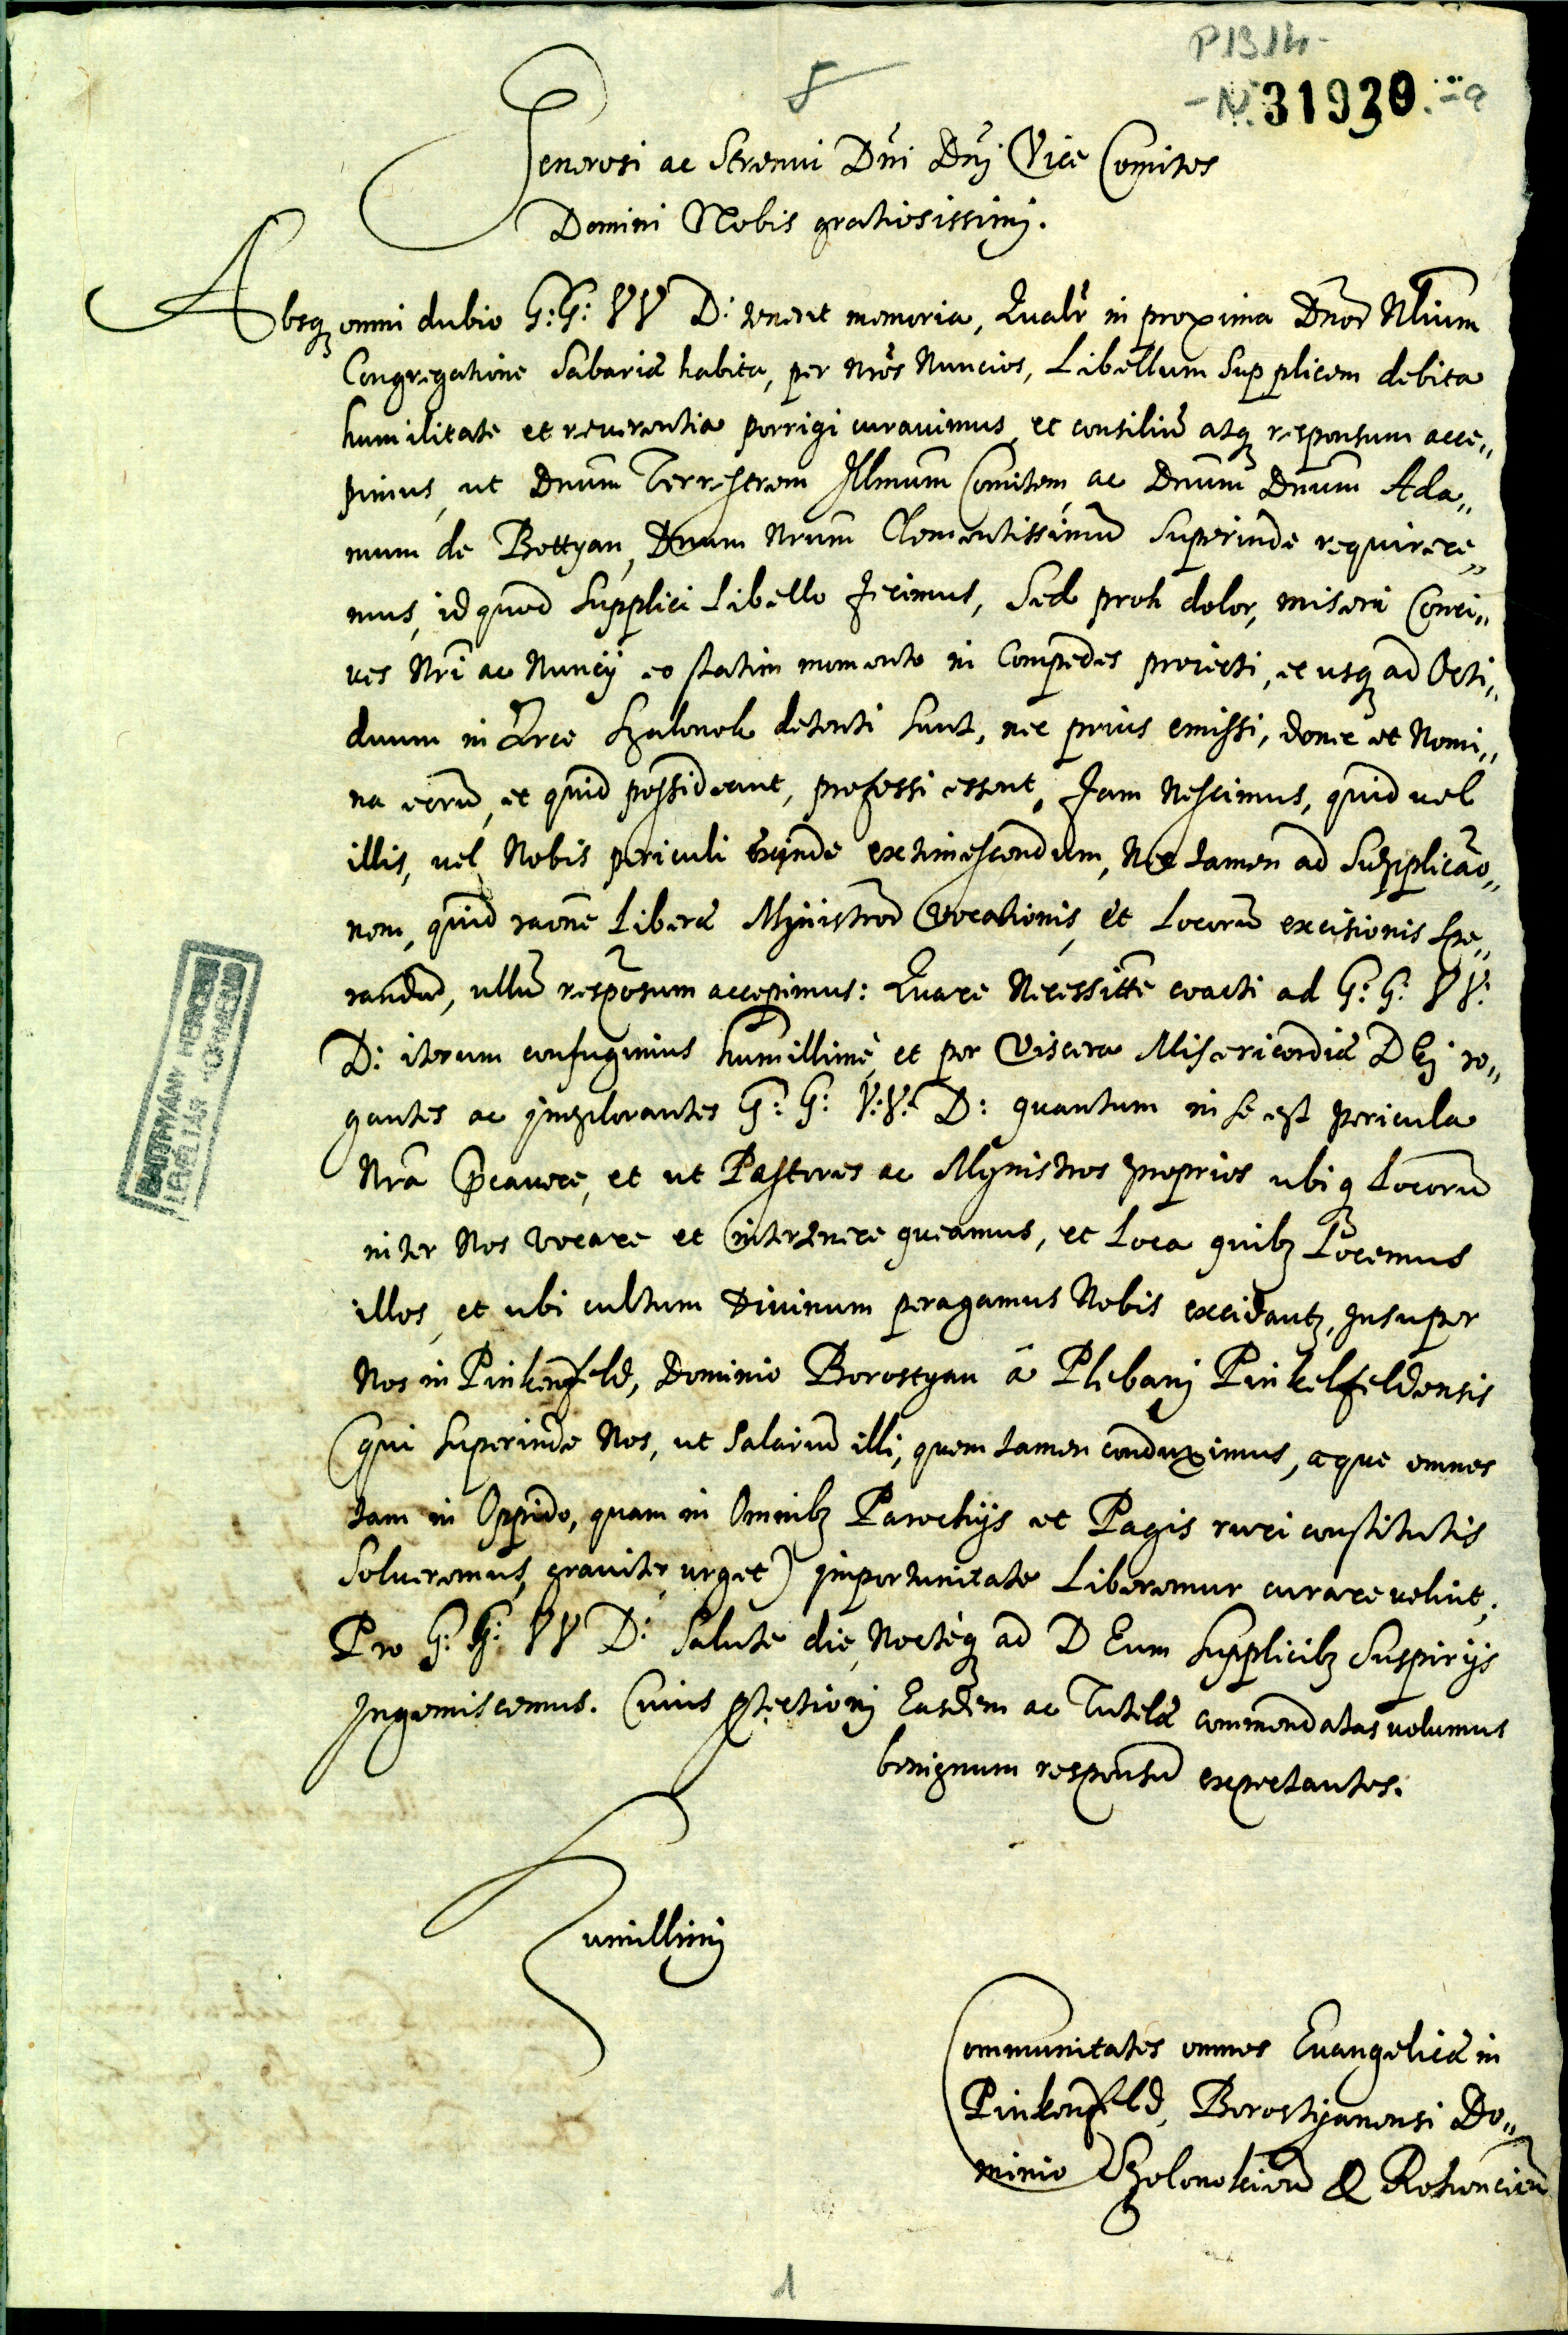 P 1314.
8
N. 31930.
Generosi ac Strenui Dńi Dńj Vice Comites
Domini Nobis gratiosissimj.
Absq̨ omni dubio G: G: VV D: tenent memoria, Qualr̃ in proxima Dnoꝝ Nlium
Congregatione Sabariæ habita, per nr̃os Nuncios, Libellum Supplicem debita
humilitate et reuerentia porrigi curauimus, et consiliũ atq̨ responsum acce„
pimus, ut Dnum̃ Terrestrem Illmum̃ Comitem, ac Dnum̃ Dnum̃ Ada„
mum de Bottyan, Dnum Nrum̃ Clementissimũ Superinde requirere„
mus, id quod Supplici Libello fecimus, Sed proh dolor, miseri Conci„
ues Nrĩ ac Nuncij eo statim momento in Compedes proiecti, et usq̨ ad Octi„
duum in Arce Szalonok detenti sunt, nec prius emissi, donec et Nomi„
na eorũ, et quid possideant, professi essent. Jam Nescimus, quid uel
illis, uel Nobis periculi exinde extimescendum, Nec tamen ad Supplicão„
nem, quid raõne Liberæ Mynistroꝝ Vocationis, et Locorũ excisionis spe„
randũ, ullũ responsum accepimus: Quare Necessitte coacti ad G: G: VV:
D: iterum confugimus humillimè, et per Viscera Misericordiæ DEj ro„
gantes ac ymplorantes G: G: V: V: D: quantum in se est pericula
Nrã p̃cauere, et ut Pastores ac Mynistros proprios ubiq̨ Locorũ
inter Nos vocare et intertenere queamus, et Loca quibꝫ Locemus
illos, et ubi cultum Diuinum peragamus Nobis excidantꝫ, Insuper
Nos in Pinkenfeld, Dominio Borostyan â Plebanj Pinkelfeldensis
(qui Superinde Nos, ut Salariũ illi, quem tamen conduximus, aque omnes
tam in Oppido, quam in Omnibꝫ Parochijs et Pagis ruri constitutis
Solueremus, grauiter urget) ymportunitate Liberemur curare uelint,
Pro G: G: VV D: Salute die, Nocteq̨ ad DEum Supplicibꝫ Suspirijs
Ingemiscemus. Cuius ꝓtectionj Easdem ac Tutelæ commendatas uolumus
benignum responsũ expectantes.
Humillimj
Communitates omnes Euangelicæ in
Pinkenfeld, Borostyanensi Do„
minio Szolonokien̄ & Rohoncien̄
BATTHYÁNY HERCEGI
LEVÉLTÁR KÖRMEND
1